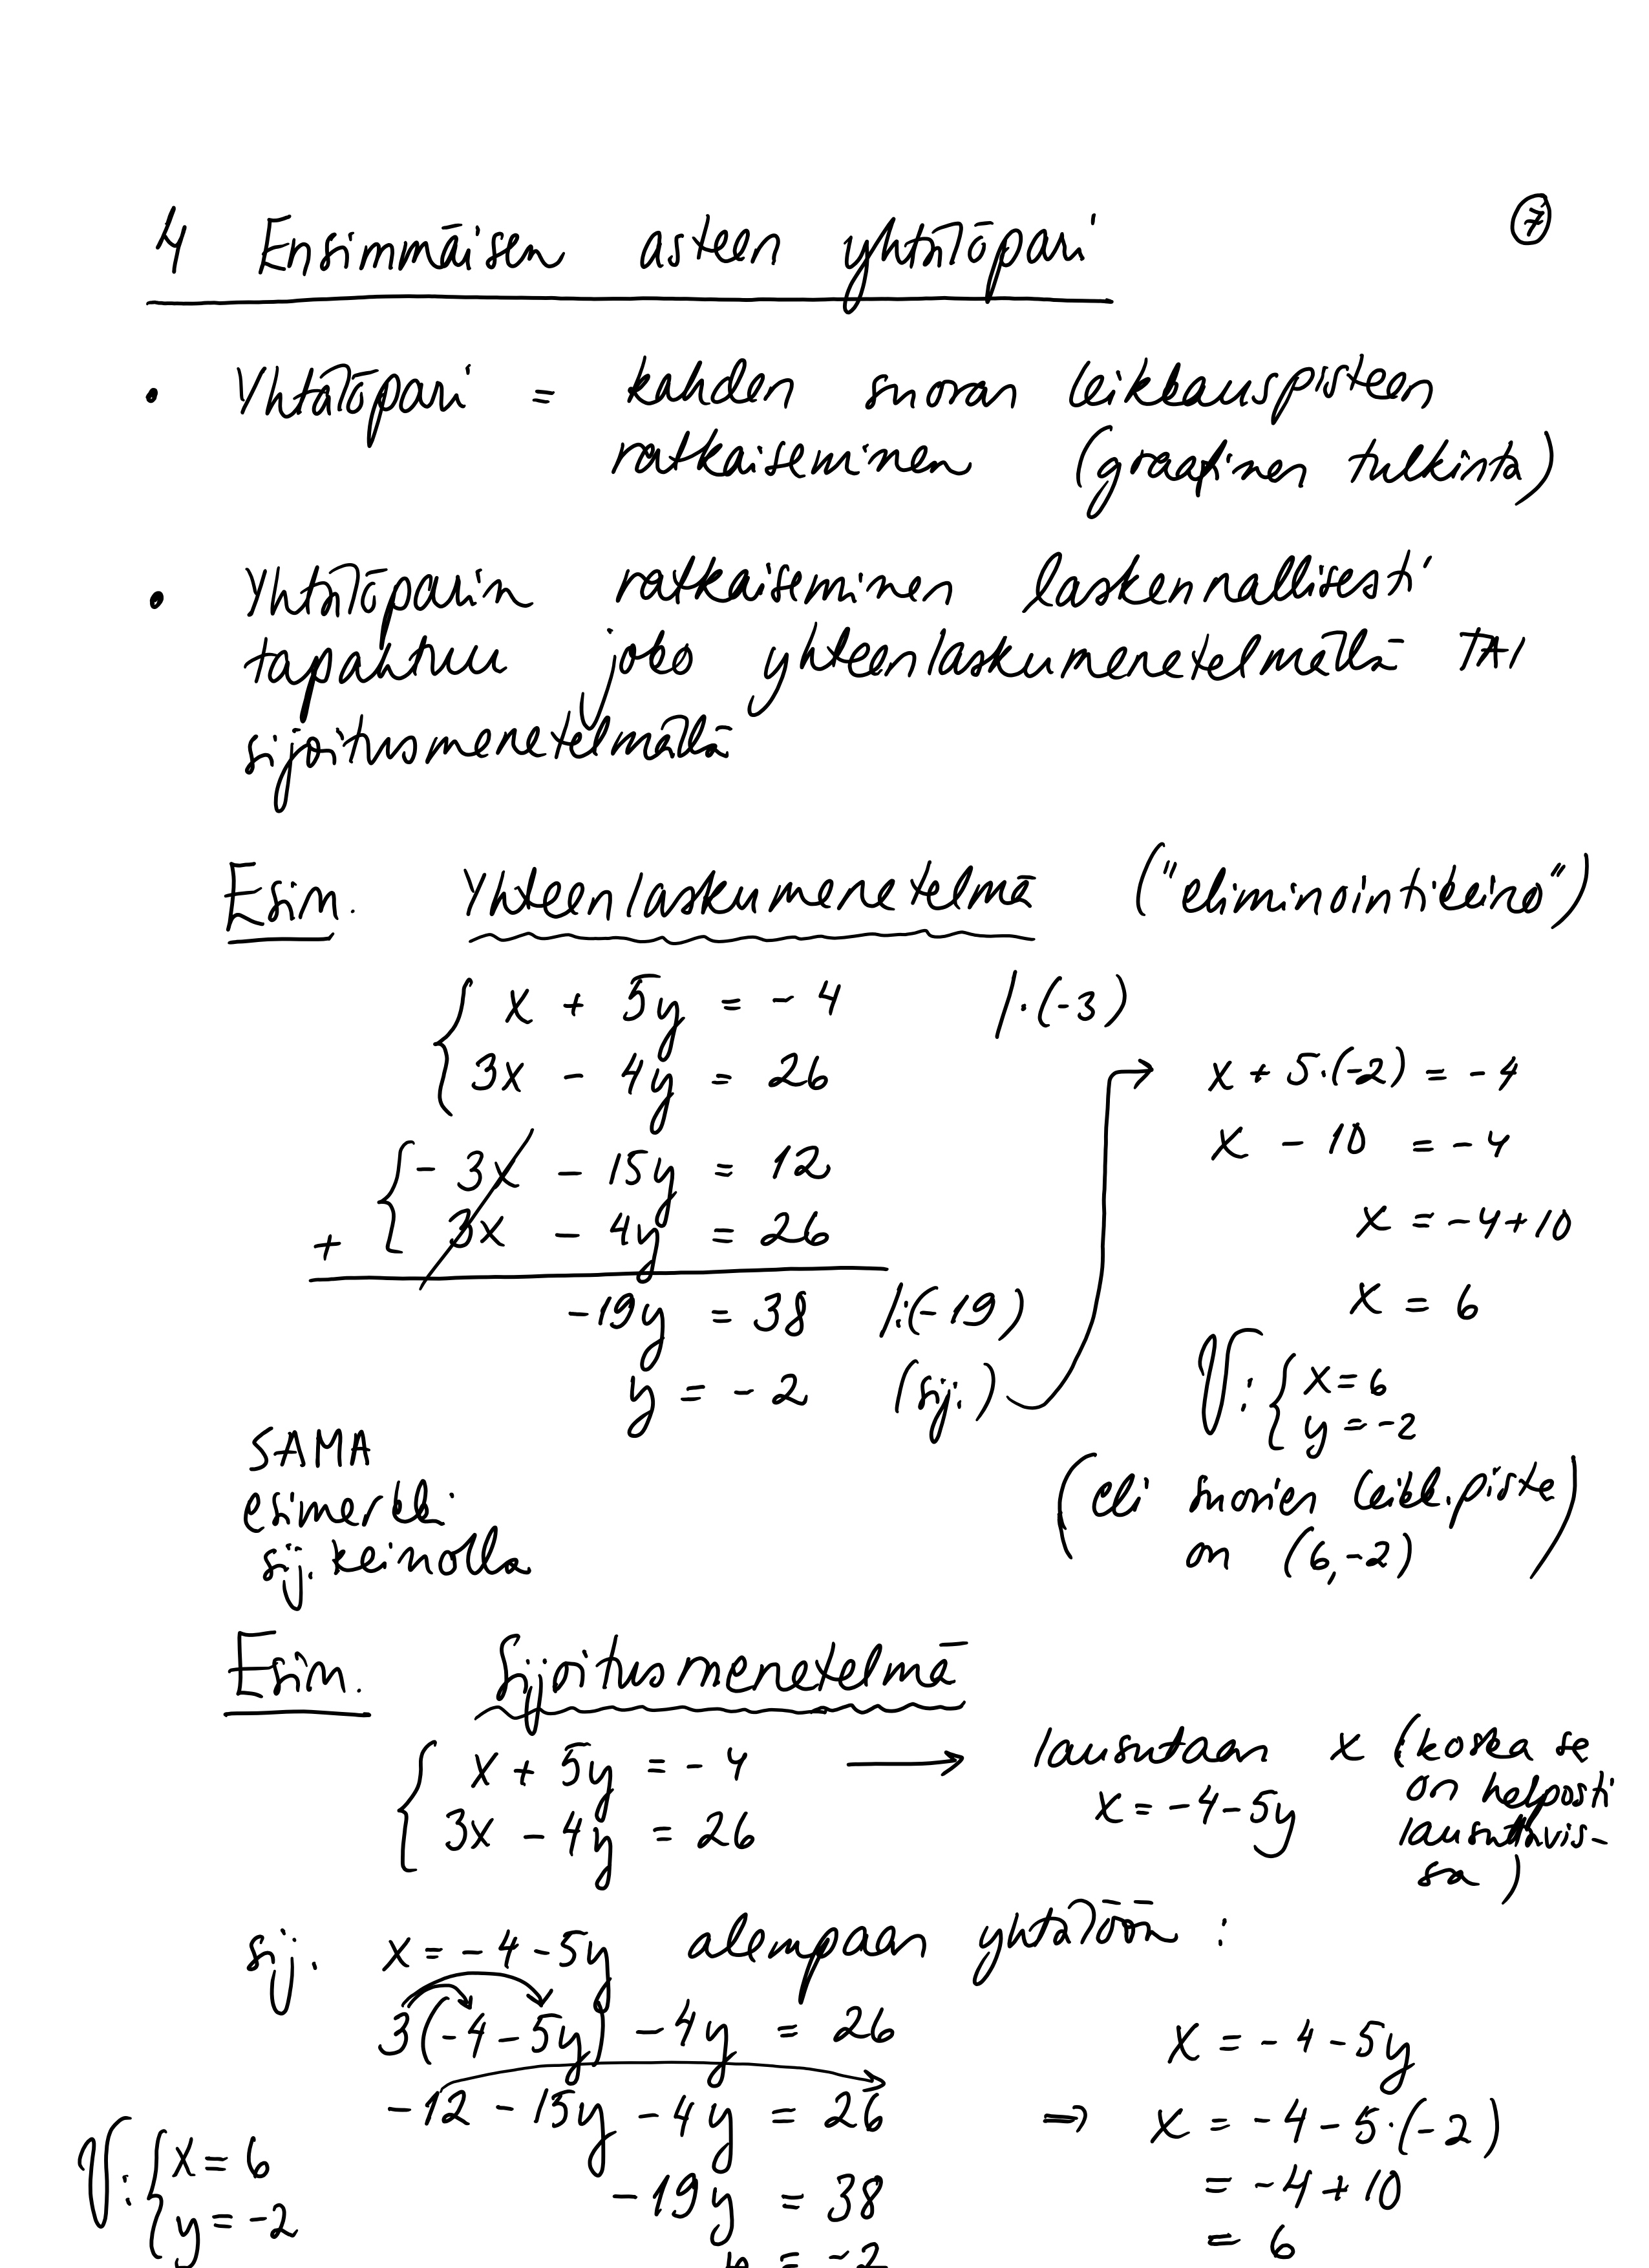 4 Ensimmäisen asteen yhtälöpari
7
• Yhtälöpari = kahden suoran leikkauspisteen
ratkaiseminen (graafinen tulkinta)
• Yhtälöparin ratkaiseminen laskennallisesti
tapahtuu joko yhteenlaskumenetelmällä TAI
sijoitusmenetelmällä
Esim. Yhteenlaskumenetelmä ("eliminointikeino")
x + 5y = -4 |·(-3)
3x - 4y = 26
-3x - 15y = 12
+ 3x - 4y = 26
-19y = 38 |:(-19)
y = -2 (sij.)
x + 5·(-2) = -4
x - 10 = -4
x = -4+10
x = 6
V: { x = 6
y = -2
(eli suorien leikk.piste
on (6,-2)
SAMA
esimerkki
sij. keinolla
Esim. Sijoitusmenetelmä
{ x + 5y = -4 → lausutaan x (koska se
3x - 4y = 26
x = -4-5y
on helposti
lausuttavis-
sa)
sij. x = -4-5y alempaan yhtälöön:
3(-4-5y) - 4y = 26
-12 - 15y - 4y = 26
-19y = 38
y = -2
x = -4-5y
⇒ x = -4-5·(-2)
= -4+10
= 6
V: { x = 6
y = -2